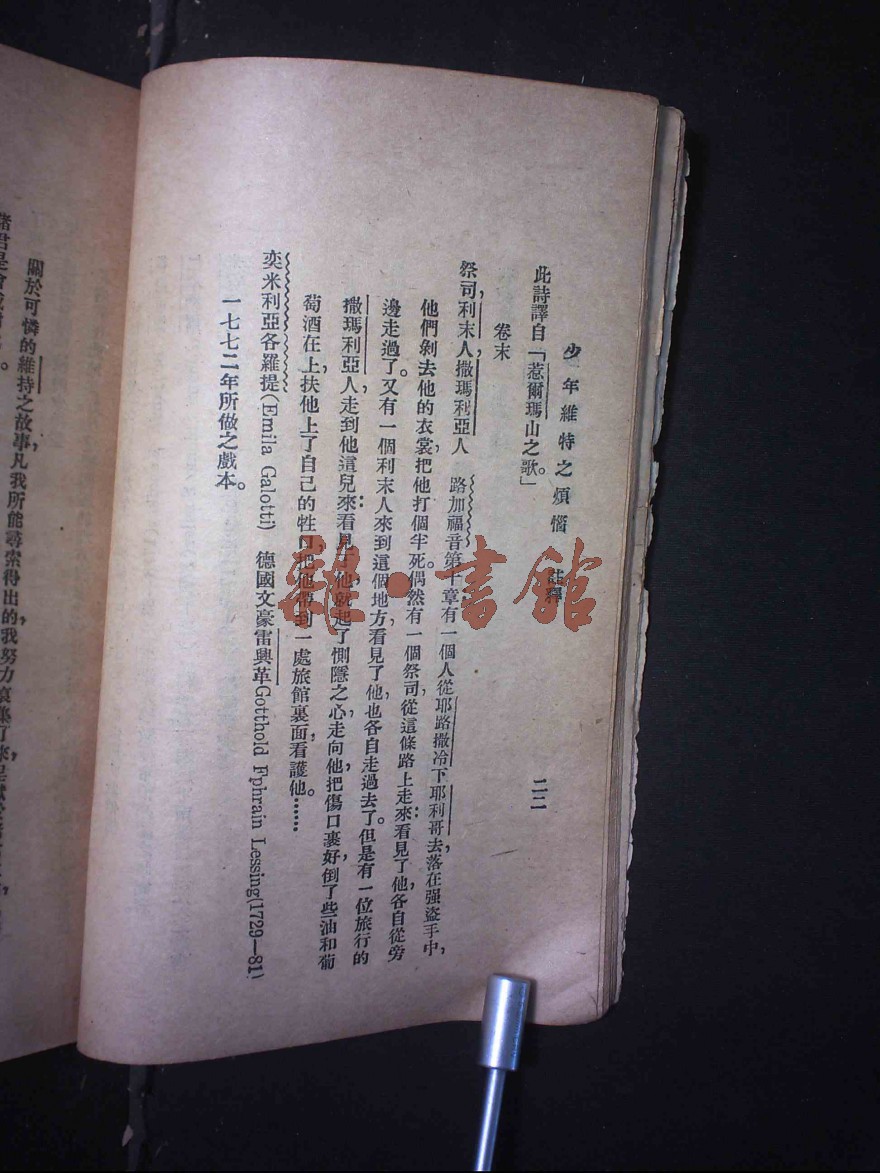 少年維特之煩惱　註釋　二二
此詩譯自「惹爾瑪山之歌。」
卷末
祭司，利末人，撒瑪利亞人　路加福音第十章有一個人從耶路撒冷下耶利哥去，落在强盜手中，
他們剝去他的衣裳，把他打個半死。偶然有一個祭司，從這條路上走來；看見了他，各自從旁
邊走過了。又有一個利末人來到這個地方，看見了他，也各自走過去了。但是有一位旅行的
撒瑪利亞人，走到他這兒來；看見了他，就起了惻隱之心，走向他，把傷口裹好，倒了些油和葡
萄酒在上，扶他上了自己的牲口，把他帶到一處旅館裏面，看護他。……
奕米利亞各羅提(Emila Galotti)　德國文豪雷興革Gotthold Ephrain Lessing(1729—81)
一七七二年所做之戲本。
關於可憐的維持之故事，凡我所能尋索得出的，我努力裒集了來
雜·書館